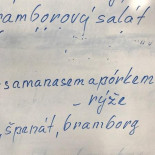 bramborový salát
s ananasem a pórkem
- rýže
, špenát, brambory